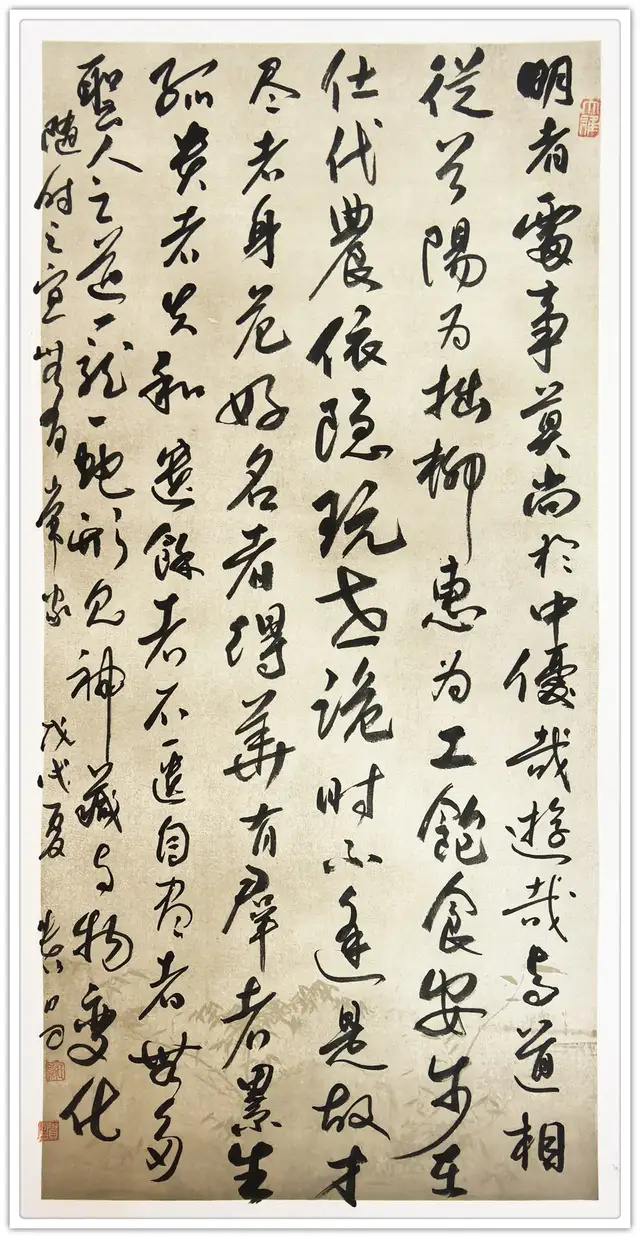 明者處事莫尚於中優哉遊哉与道相
從首陽为拙柳惠为工飽食安步在
仕代農依隐玩世詭时不逢是故才
尽者身危好名者得華有羣者累生
孤贵者失和遗餘者不匱自尽者無多
聖人之道一龙一蛇形见神藏与物变化
随时之宜無有常家 戊戌夏